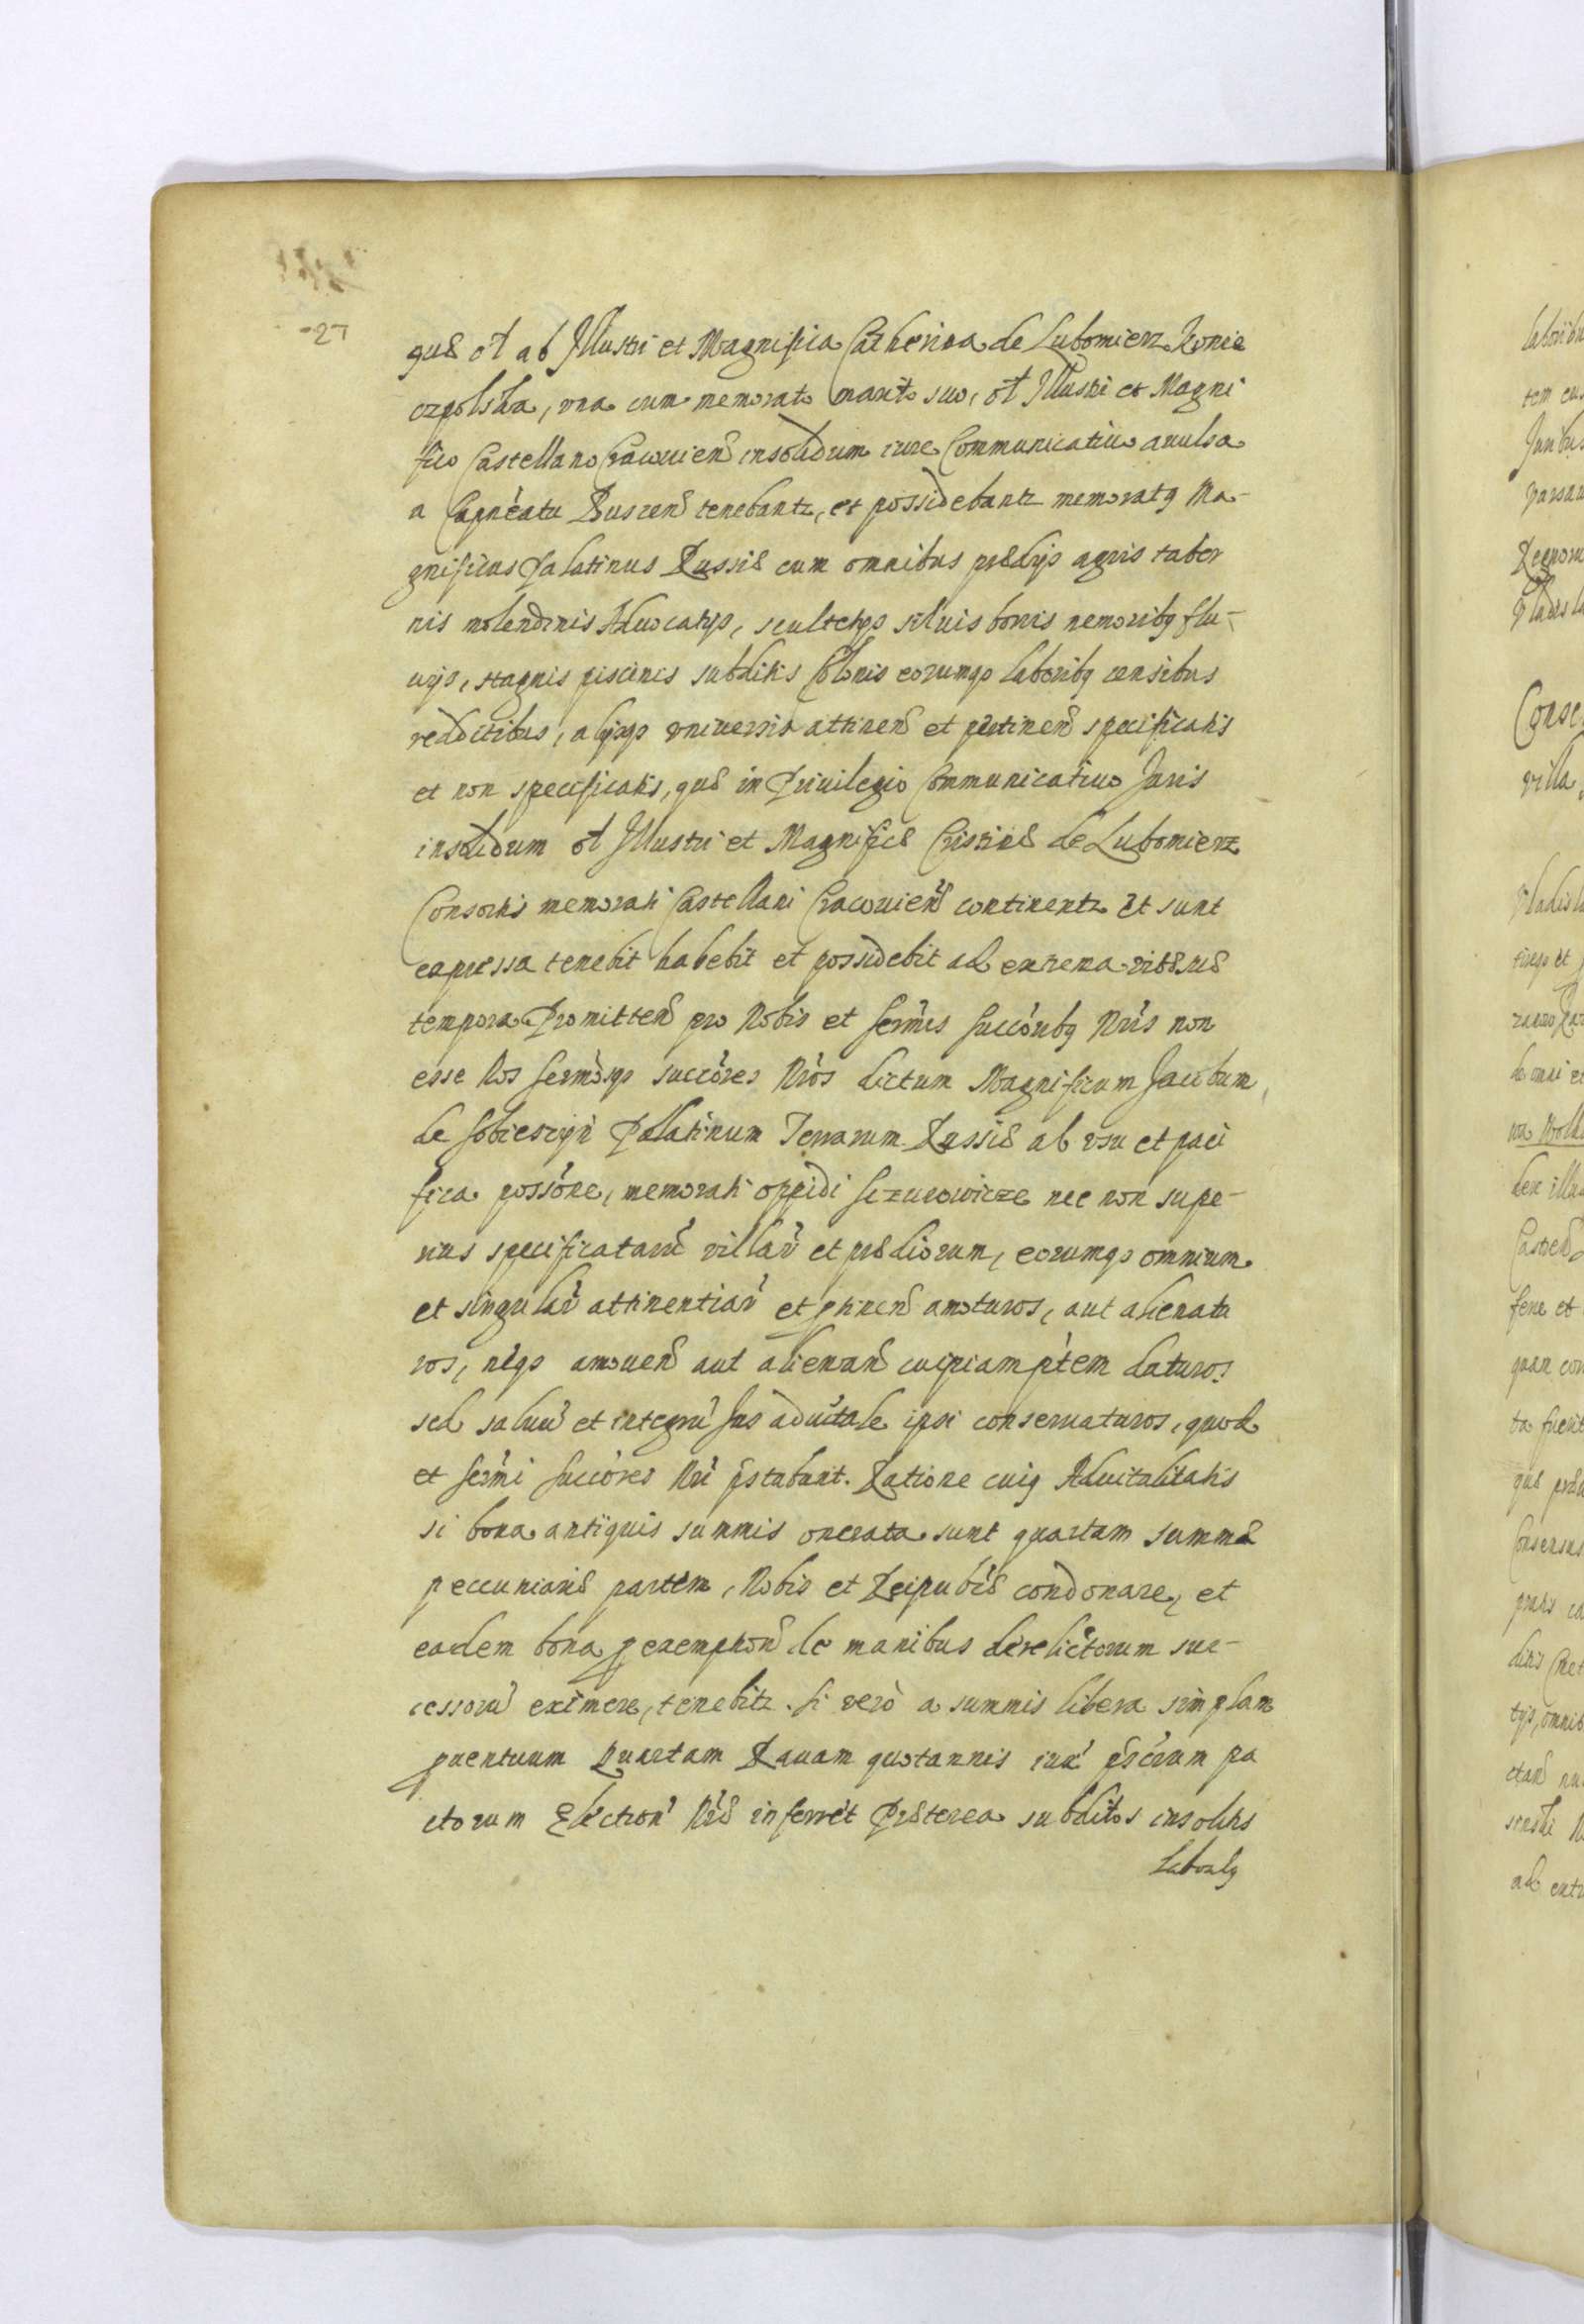 27
quæ olim ab Illustri et Magnifica Catherina de Lubomierz Konie
czpolska, vna cum memorato marito suo, ol Illustri et Magni
fico Castellano Cracouien insolidum iure Communicatiuo auulsa
a Capneatu Buscen tenebantr, et possidebantr memoratq Ma-
gnificus Palatinus Russiæ cum omnibus prædijs agris taber
nis molendinis Aduocatijs, scultetijs siluis borris nemoribq flu-
uijs, stagnis piscinis subditis Colonis eorumqs laboribq censibus
redditibus, alijsqs vniuersis attinen et pertinen specificatis
et non specificatis, quæ in Priuilegio Communicatiuo Juris
insolidum ol Illustri et Magnificæ Cristinæ de Lubomierz
Consortis memorati Castellani Cracouien continentr et sunt
expressa tenebit habebit et possidebit ad extrema vitæ suæ
tempora. Promitten pro Nobis et Sermis Succoribq Nris non
esse Nos Sermosqs succores Nros dictum Magnificum Jacobum
de Sobieszyn Pallatinum Terrarum Russiæ ab vsu et paci
fica possone, memorati oppidi Sczurowicze nec non supe-
rius specificataru villaru et prædiorum, eorumqs omnium
et singularu attinentiaru et ptinen amoturos, aut alienatu
ros, neqs amouen aut alienan cuipiam ptem daturos
sed saluu et integru Jus aduitale ipsi conseruaturos, quod
et Sermi Succores Nri pstabunt. Ratione cuiq Aduitalitatis
si bona antiquis summis onerata sunt quartam summæ
peccuniariæ partem, Nobis et Reipubcæ condonare, et
eadem bona p exemption de manibus derelictorum suc-
cessoru eximere, tenebitr. Si vero a summis libera simplam
puentuum Quartam Rauam quotannis iux pscrum pa
ctorum Election Nræ inferret Præterea subditos insolitis
Laboribq